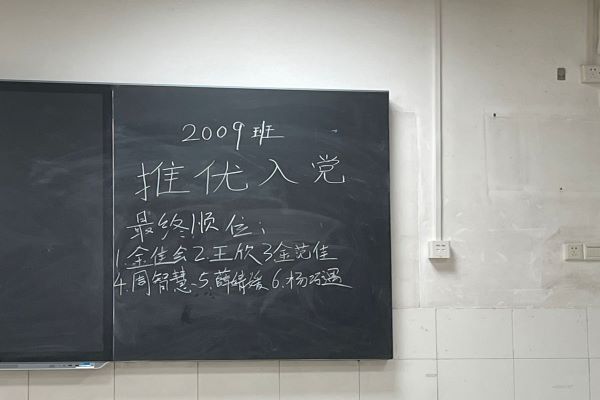 2009班
推优入党
最终顺位:
1.金佳会 2.王欣 3金范佳
4.周智慧 5.薛婧媛 6.杨巧遇